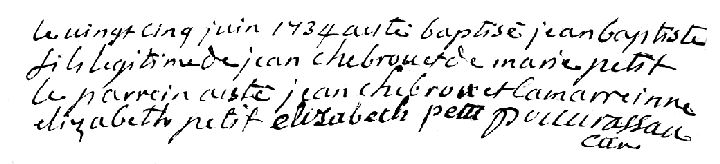 le vingt cinq juin 1734 a esté baptisé jean baptiste
fils legitime de jean chebrou et de marie petit
le parrein a esté jean chebrou et la marreinne
elizabeth petit elizabeth petit